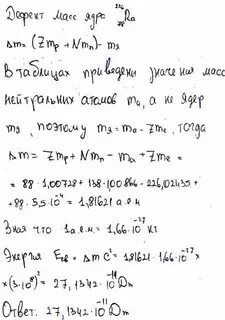 Дефект масс ядра ²²⁶₈₈Ra
Δm = (Zmp + Nmn) - mя
В таблицах приведены значения масс
нейтральных атомов ma, а не ядер
mя, поэтому mя = ma - Zme, тогда
Δm = Zmp + Nmn - ma + Zme =
= 88 · 1,00728 + 138 · 1,00866 - 226,02435 +
+ 88 · 5,5 · 10⁻⁴ = 1,81621 а.е.м
Зная что 1 а.е.м. = 1,66 · 10⁻²⁷ кг
Энергия Eсв = Δmc² = 1,81621 · 1,66 · 10⁻²⁷ ×
× (3 · 10⁸)² = 27,1342 · 10⁻¹¹ Дж
Ответ: 27,1342 · 10⁻¹¹ Дж